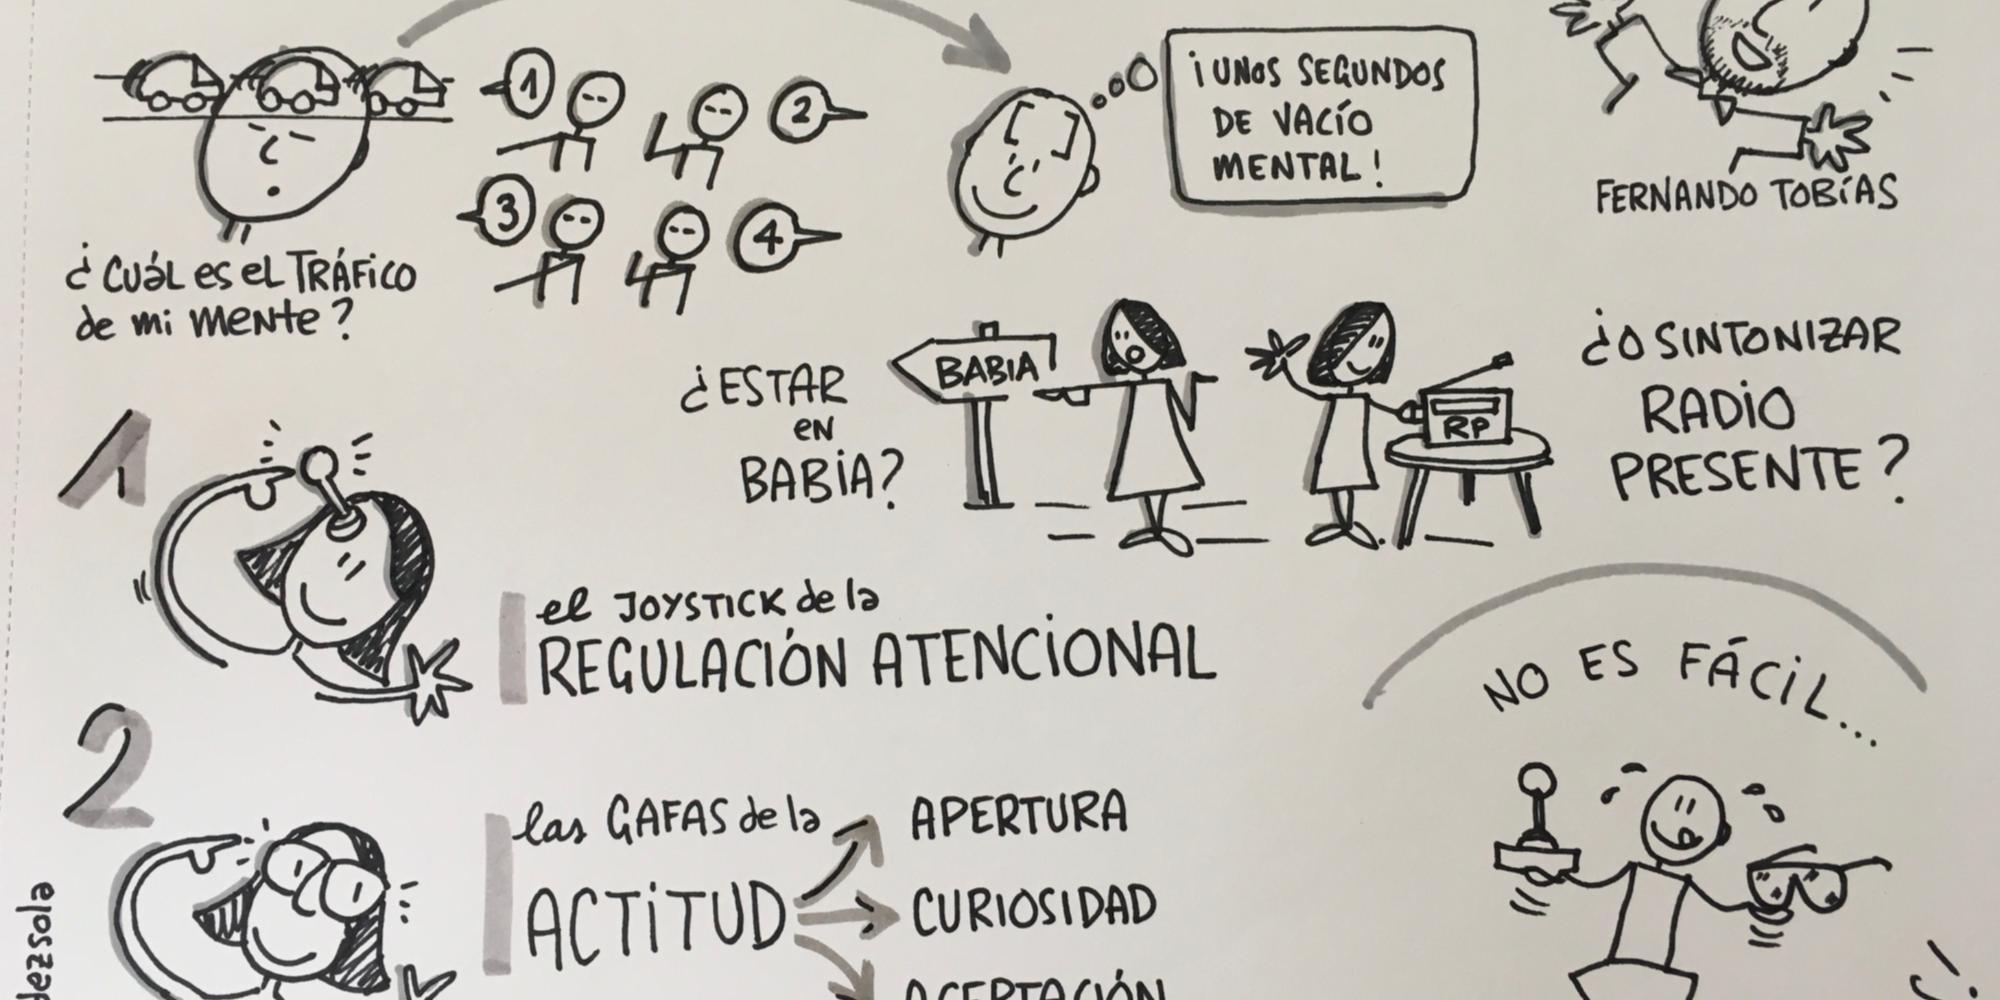 ¡UNOS SEGUNDOS
DE VACÍO
MENTAL!
FERNANDO TOBÍAS
1
2
3
4
¿CUÁL es el TRÁFICO
de mi mente?
¿ESTAR
EN
BABIA?
BABIA
RP
¿O SINTONIZAR
RADIO
PRESENTE?
1
el JOYSTICK de la
REGULACIÓN ATENCIONAL
NO ES FÁCIL...
2
las GAFAS de la
ACTITUD
APERTURA
CURIOSIDAD
ACEPTACIÓN
dezsola